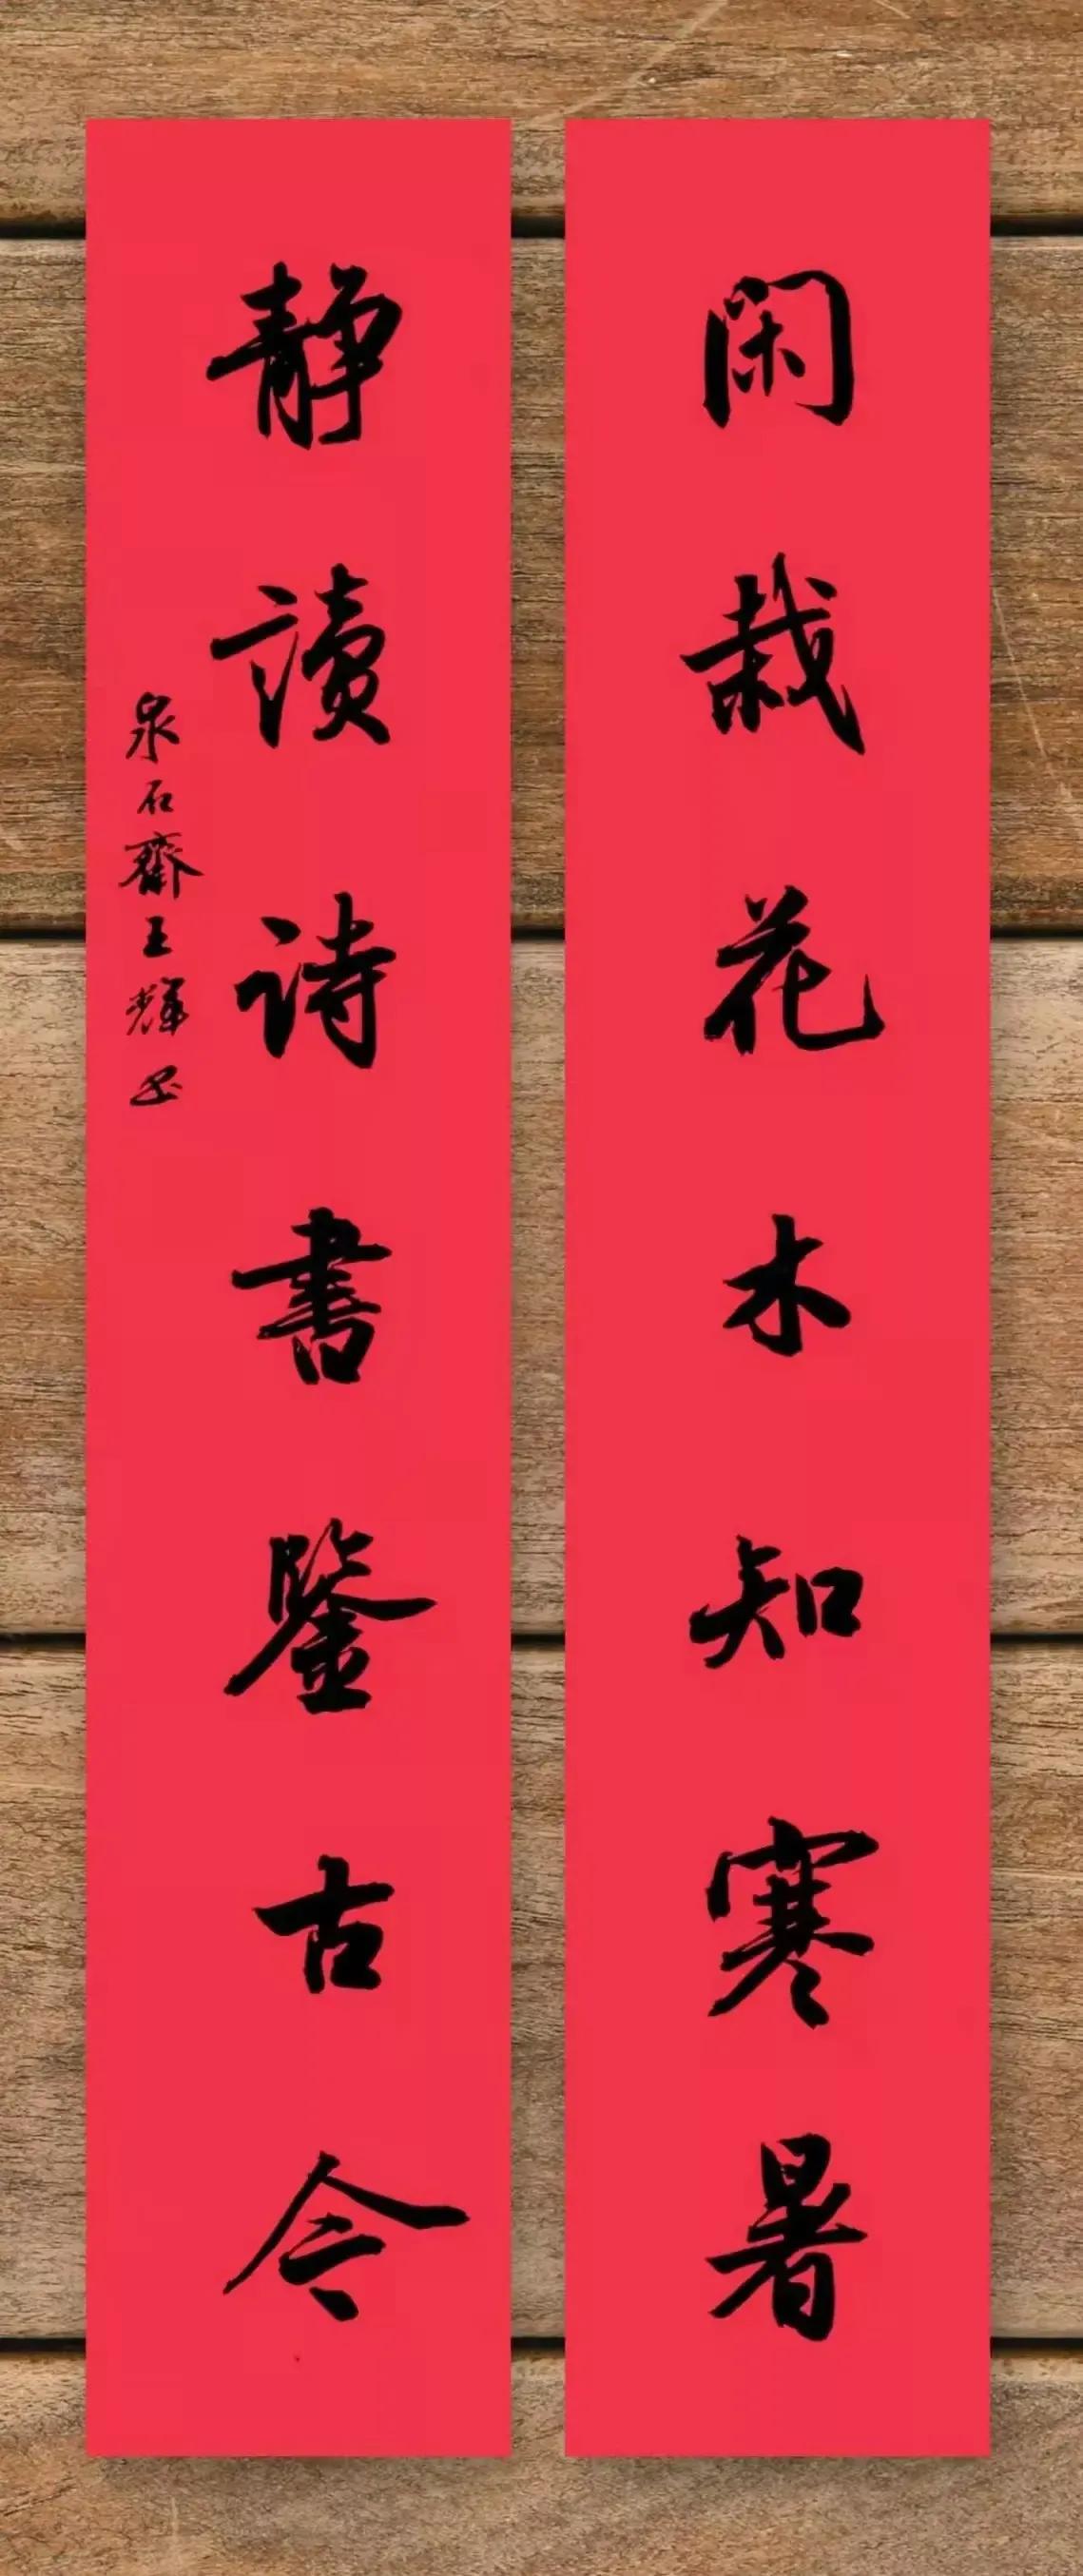 闲栽花木知寒暑
静讀诗書鑒古今
泉石齋王輝书